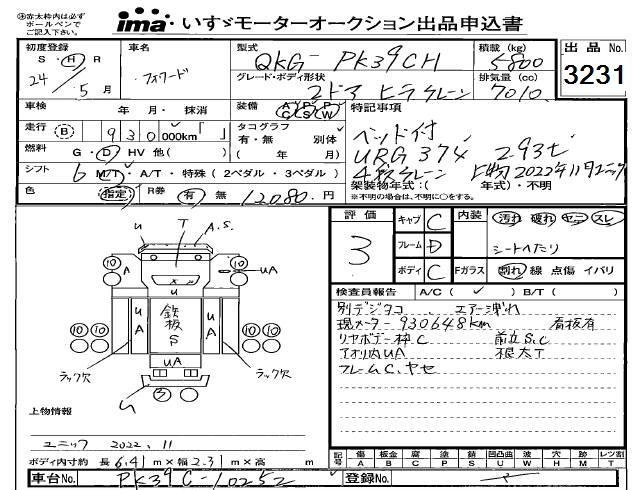 ※赤太枠内は必ず
ボールペンで
ご記入下さい。
ima・いすゞモーターオークション出品申込書
初度登録 車名 型式 積載(kg) 出品No.
S・H・R フォワード QKG-PK39CH 5800 3231
24/5月 グレード・ボディ形状 排気量(cc)
2ドア ヒラ クレーン 7010
車検 年・月・抹消 装備 A/C P/S P/W 特記事項
走行 B 930 000km「 」 タコグラフ 有・無 別体 ベッド付
燃料 G・D・HV 他( ) ( 年 月) URG374 2.93t
シフト 6 M/T・A/T・特殊(2ペダル・3ペダル) 4段クレーン 上物2022年11月ユニック
架装物年式:( 年式)・不明
色 指定 R券 有 無 12080.円 ※不明の場合は、不明に○をする。
評価 キャブ C 内装 汚れ 破れ ヤニ スレ
3 フレーム D シートへたり
ボディ C Fガラス 割れ 線 点傷 イバリ
検査員報告 A/C( ✓ ) B/T( )
別デジタコ、エアー洩れ
現メーター930648km 看板有
リヤボデー枠C 前立S,C
アオリ内UA 根太T
フレームC.ヤセ
u T A.S.
10 A 10 uA
u
10 10 u A 鉄板 S u A 10 10
uA
ラック欠 ラック欠
3
上物情報
ユニック 2022.11
ボディ内寸約 長6.41m×幅2.31m×高 m
記号 傷 板金 腐 塗 錆 凹凸曲 波 穴 跡 レツ割
A B C P S U W H M T
車台No. PK39C-10252 登録No.